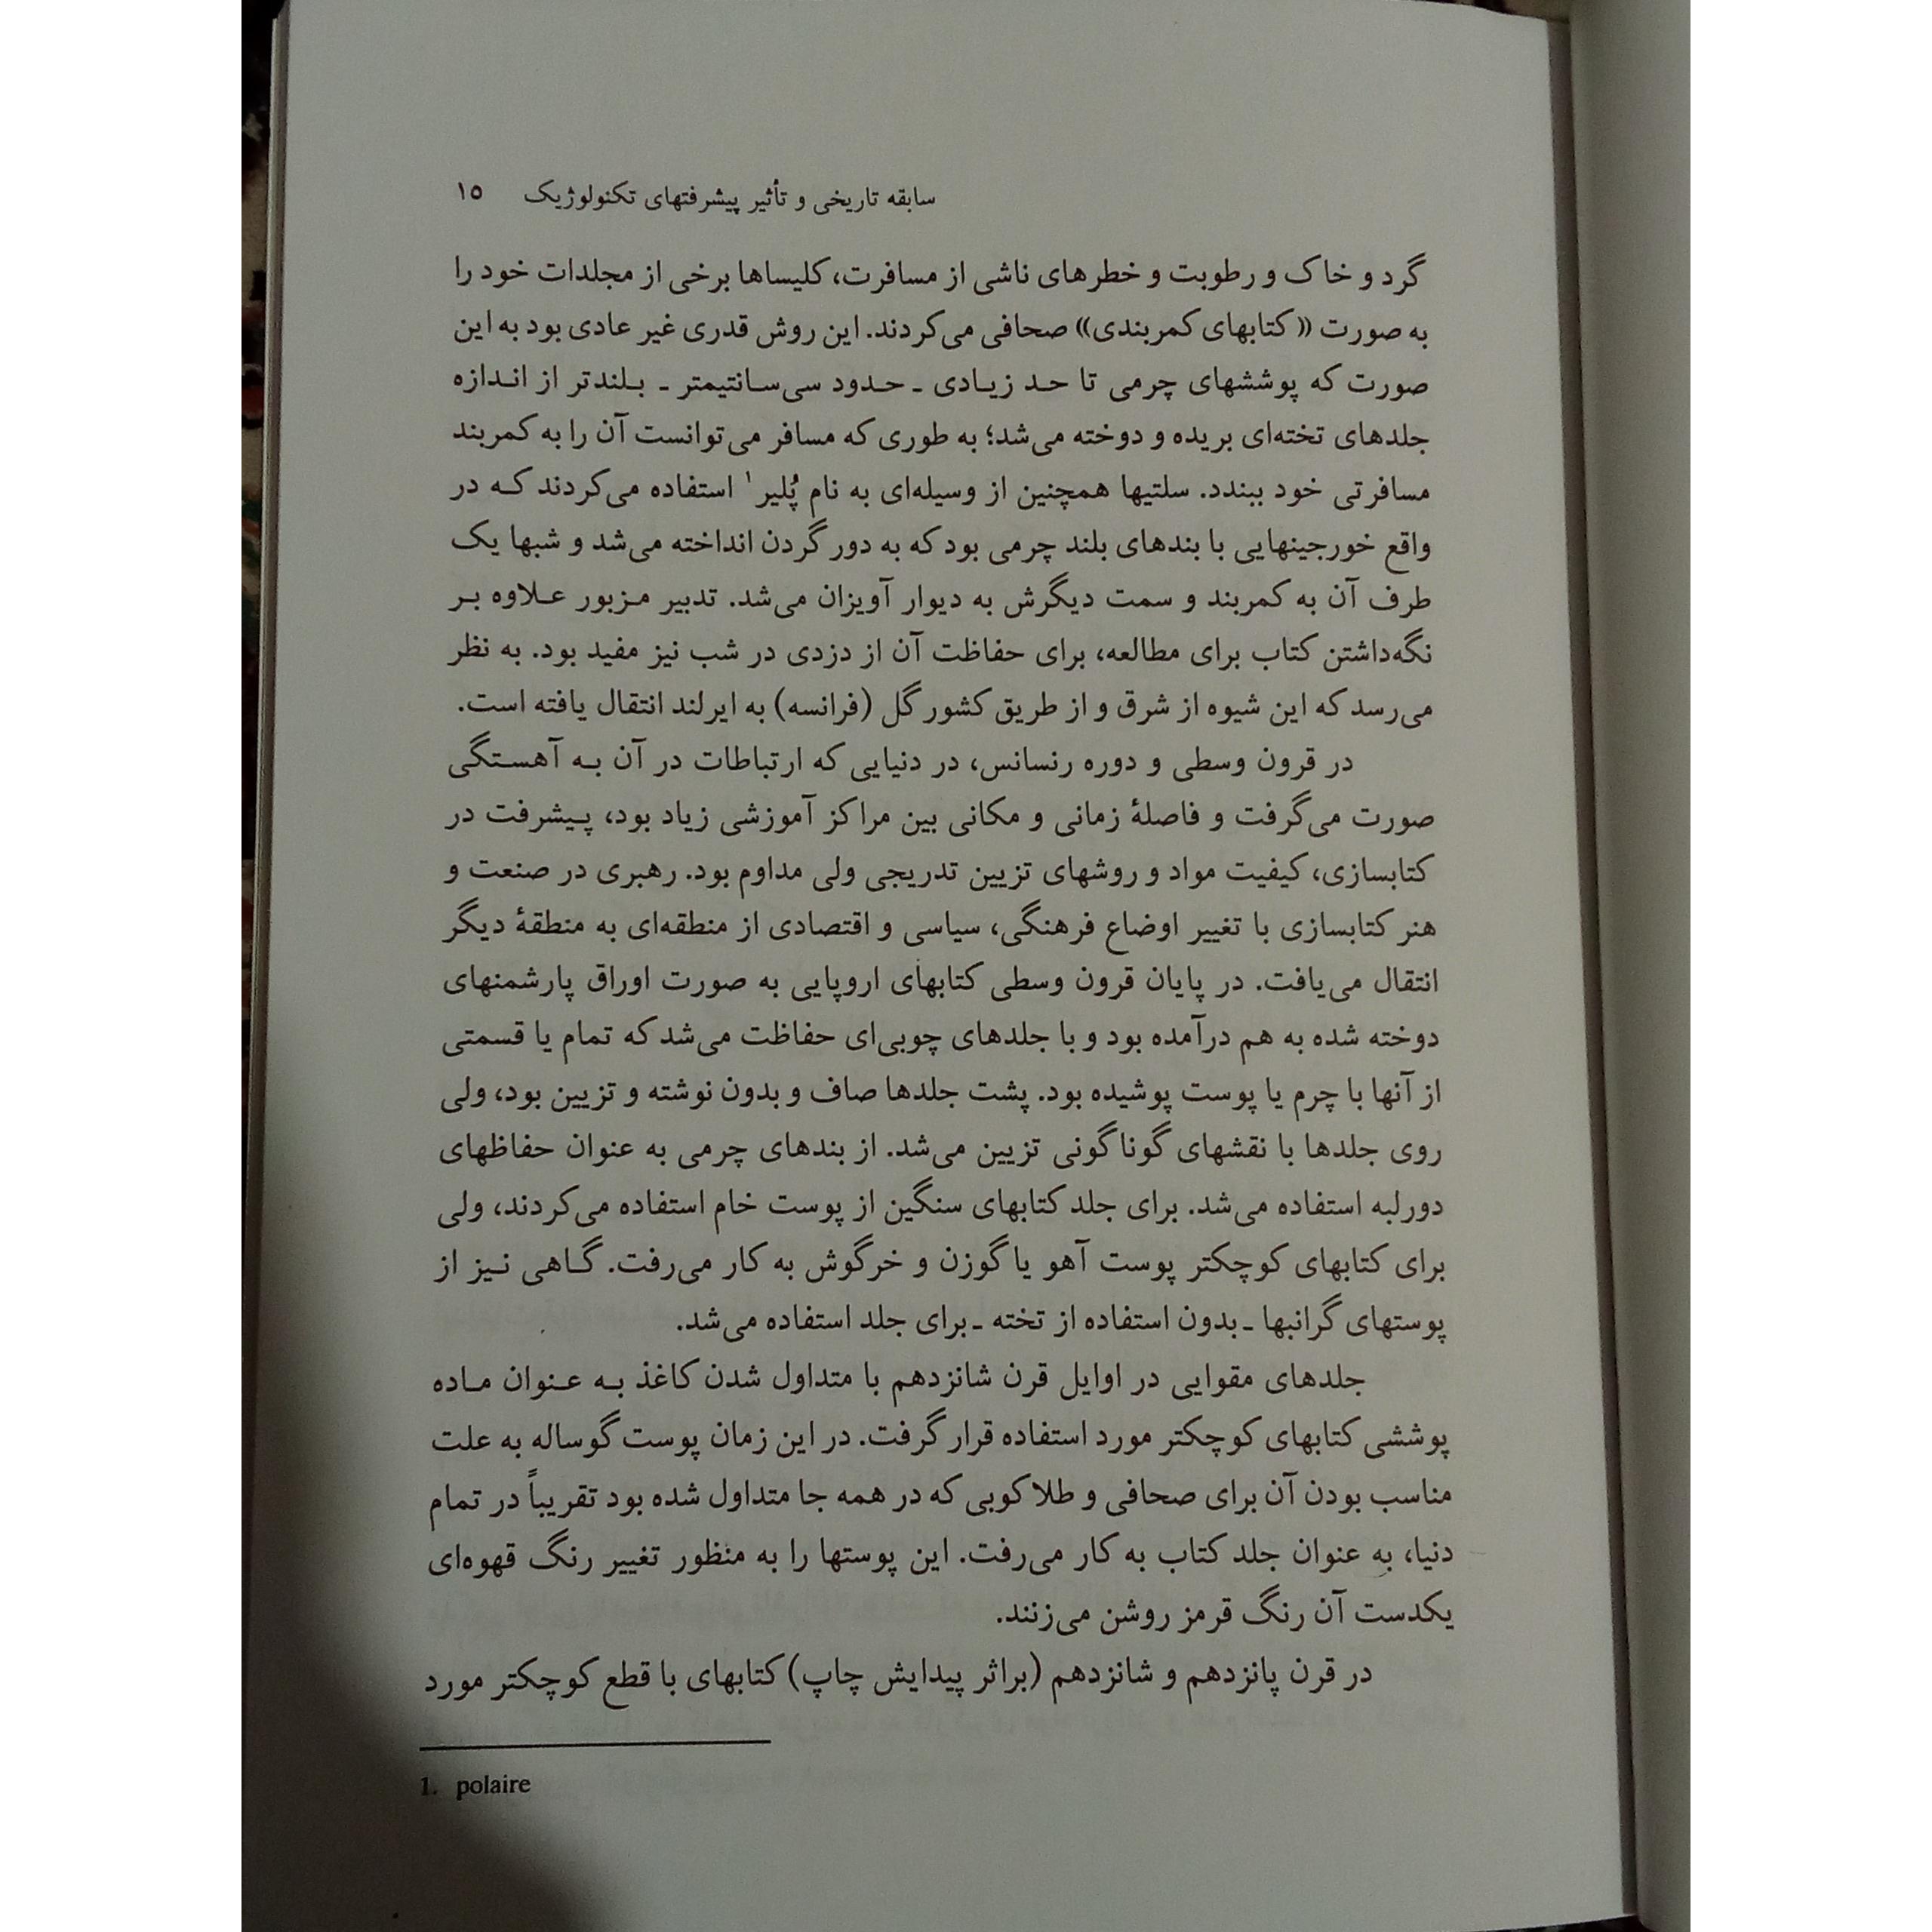 سابقه تاریخی و تأثیر پیشرفتهای تکنولوژیک ۱۵
گرد و خاک و رطوبت و خطرهای ناشی از مسافرت، کلیساها برخی از مجلدات خود را
به صورت «کتابهای کمربندی» صحافی می‌کردند. این روش قدری غیر عادی بود به این
صورت که پوششهای چرمی تا حد زیادی ـ حدود سی‌سانتیمتر ـ بلندتر از اندازه
جلدهای تخته‌ای بریده و دوخته می‌شد؛ به طوری که مسافر می‌توانست آن را به کمربند
مسافرتی خود ببندد. سلتیها همچنین از وسیله‌ای به نام پُلیر۱ استفاده می‌کردند که در
واقع خورجینهایی با بندهای بلند چرمی بود که به دور گردن انداخته می‌شد و شبها یک
طرف آن به کمربند و سمت دیگرش به دیوار آویزان می‌شد. تدبیر مزبور علاوه بر
نگه‌داشتن کتاب برای مطالعه، برای حفاظت آن از دزدی در شب نیز مفید بود. به نظر
می‌رسد که این شیوه از شرق و از طریق کشور گل (فرانسه) به ایرلند انتقال یافته است.
در قرون وسطی و دوره رنسانس، در دنیایی که ارتباطات در آن به آهستگی
صورت می‌گرفت و فاصلهٔ زمانی و مکانی بین مراکز آموزشی زیاد بود، پیشرفت در
کتابسازی، کیفیت مواد و روشهای تزیین تدریجی ولی مداوم بود. رهبری در صنعت و
هنر کتابسازی با تغییر اوضاع فرهنگی، سیاسی و اقتصادی از منطقه‌ای به منطقهٔ دیگر
انتقال می‌یافت. در پایان قرون وسطی کتابهای اروپایی به صورت اوراق پارشمنهای
دوخته شده به هم درآمده بود و با جلدهای چوبی‌ای حفاظت می‌شد که تمام یا قسمتی
از آنها با چرم یا پوست پوشیده بود. پشت جلدها صاف و بدون نوشته و تزیین بود، ولی
روی جلدها با نقشهای گوناگونی تزیین می‌شد. از بندهای چرمی به عنوان حفاظهای
دورلبه استفاده می‌شد. برای جلد کتابهای سنگین از پوست خام استفاده می‌کردند، ولی
برای کتابهای کوچکتر پوست آهو یا گوزن و خرگوش به کار می‌رفت. گاهی نیز از
پوستهای گرانبها ـ بدون استفاده از تخته ـ برای جلد استفاده می‌شد.
جلدهای مقوایی در اوایل قرن شانزدهم با متداول شدن کاغذ به عنوان ماده
پوششی کتابهای کوچکتر مورد استفاده قرار گرفت. در این زمان پوست گوساله به علت
مناسب بودن آن برای صحافی و طلاکوبی که در همه جا متداول شده بود تقریباً در تمام
دنیا، به عنوان جلد کتاب به کار می‌رفت. این پوستها را به منظور تغییر رنگ قهوه‌ای
یکدست آن رنگ قرمز روشن می‌زنند.
در قرن پانزدهم و شانزدهم (براثر پیدایش چاپ) کتابهای با قطع کوچکتر مورد
1. polaire